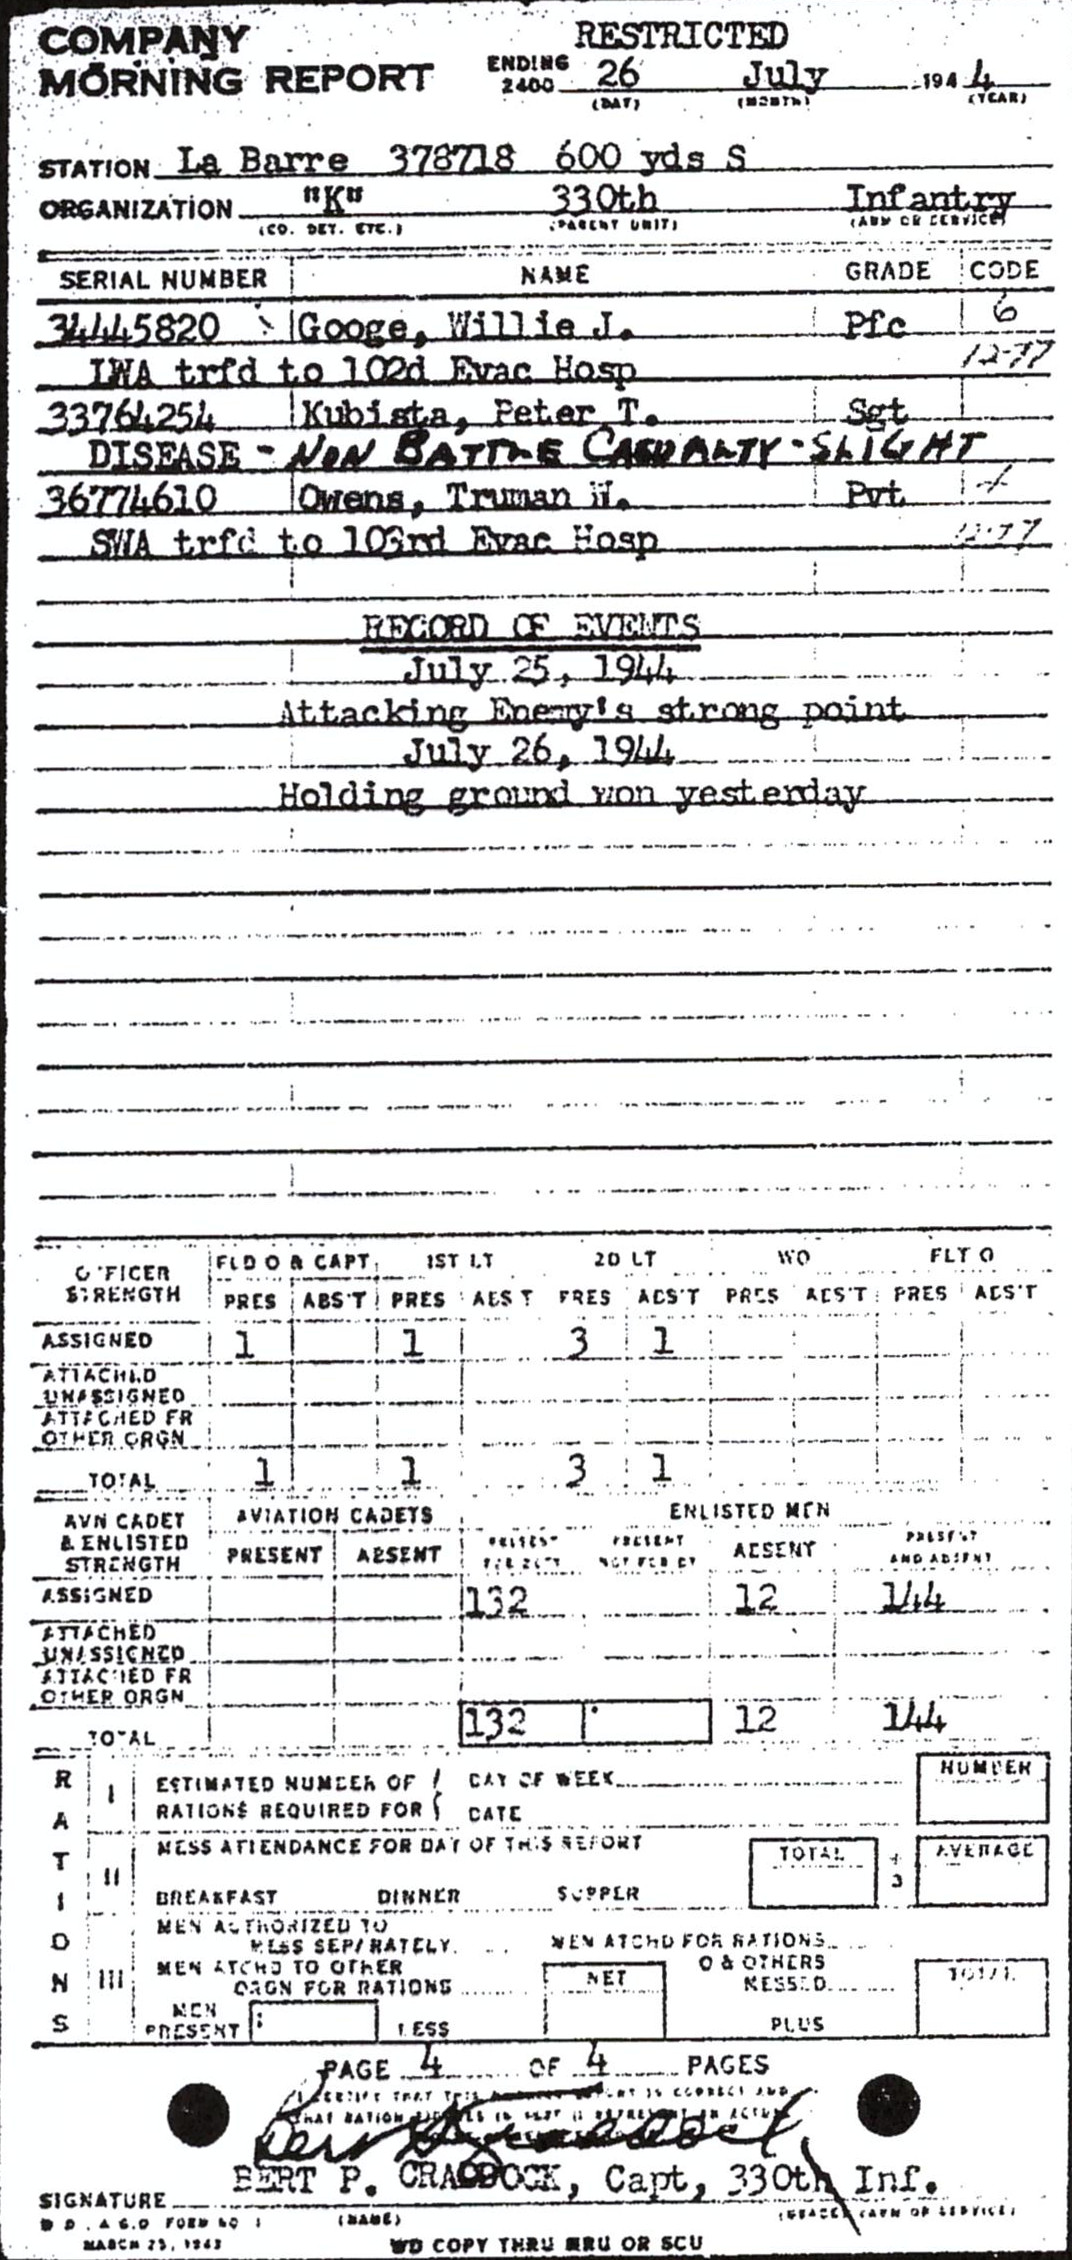 RESTRICTED
COMPANY
MORNING REPORT
ENDING 2400 26 July 1944
(DAY) (MONTH) (YEAR)
STATION La Barre 378718 600 yds S
ORGANIZATION "K" 330th Infantry
(CO. DET. ETC.) (PARENT UNIT) (ARM OR SERVICE)
SERIAL NUMBER NAME GRADE CODE
34445820 Googe, Willie J. Pfc 6
LWA trfd to 102d Evac Hosp 12-77
33764254 Kubista, Peter T. Sgt
DISEASE - NON BATTLE CASUALTY - SLIGHT
36774610 Owens, Truman W. Pvt
SWA trfd to 103rd Evac Hosp 12-77
RECORD OF EVENTS
July 25, 1944
Attacking Enemy's strong point
July 26, 1944
Holding ground won yesterday
OFFICER STRENGTH FLD O & CAPT 1ST LT 2D LT WO FLT O
PRES ABS'T PRES ABS'T PRES ABS'T PRES ABS'T PRES ABS'T
ASSIGNED 1 1 3 1
ATTACHED UNASSIGNED
ATTACHED FR OTHER ORGN
TOTAL 1 1 3 1
AVN CADET & ENLISTED STRENGTH AVIATION CADETS ENLISTED MEN
PRESENT ABSENT PRESENT FOR DUTY PRESENT NOT FOR DY ABSENT PRESENT AND ABSENT
ASSIGNED 132 12 144
ATTACHED UNASSIGNED
ATTACHED FR OTHER ORGN
TOTAL 132 12 144
RATIONS
I ESTIMATED NUMBER OF RATIONS REQUIRED FOR DAY OF WEEK DATE NUMBER
II MESS ATTENDANCE FOR DAY OF THIS REPORT TOTAL ÷ 3 AVERAGE
BREAKFAST DINNER SUPPER
III MEN AUTHORIZED TO MESS SEPARATELY MEN ATCHD FOR RATIONS
MEN ATCHD TO OTHER ORGN FOR RATIONS NET O & OTHERS MESSED TOTAL
MEN PRESENT LESS PLUS
PAGE 4 OF 4 PAGES
I CERTIFY THAT THIS REPORT IS CORRECT AND
THAT RATION
Bert P. Craddock
BERT P. CRADDOCK, Capt, 330th Inf.
SIGNATURE
(NAME) (GRADE) (ARM OR SERVICE)
W D , A G O FORM NO 1
MARCH 25, 1943
WD COPY THRU MRU OR SCU